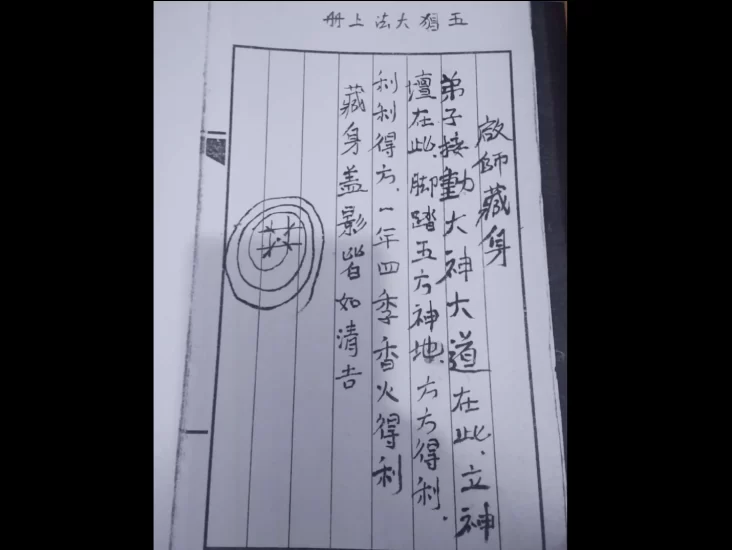 五猖大法上册
啟師藏身
弟子接動大神大道在此、立神
壇在此、脚踏五方神地、方方得利.
利利得方、一年四季香火得利
藏身盖影皆如清吉